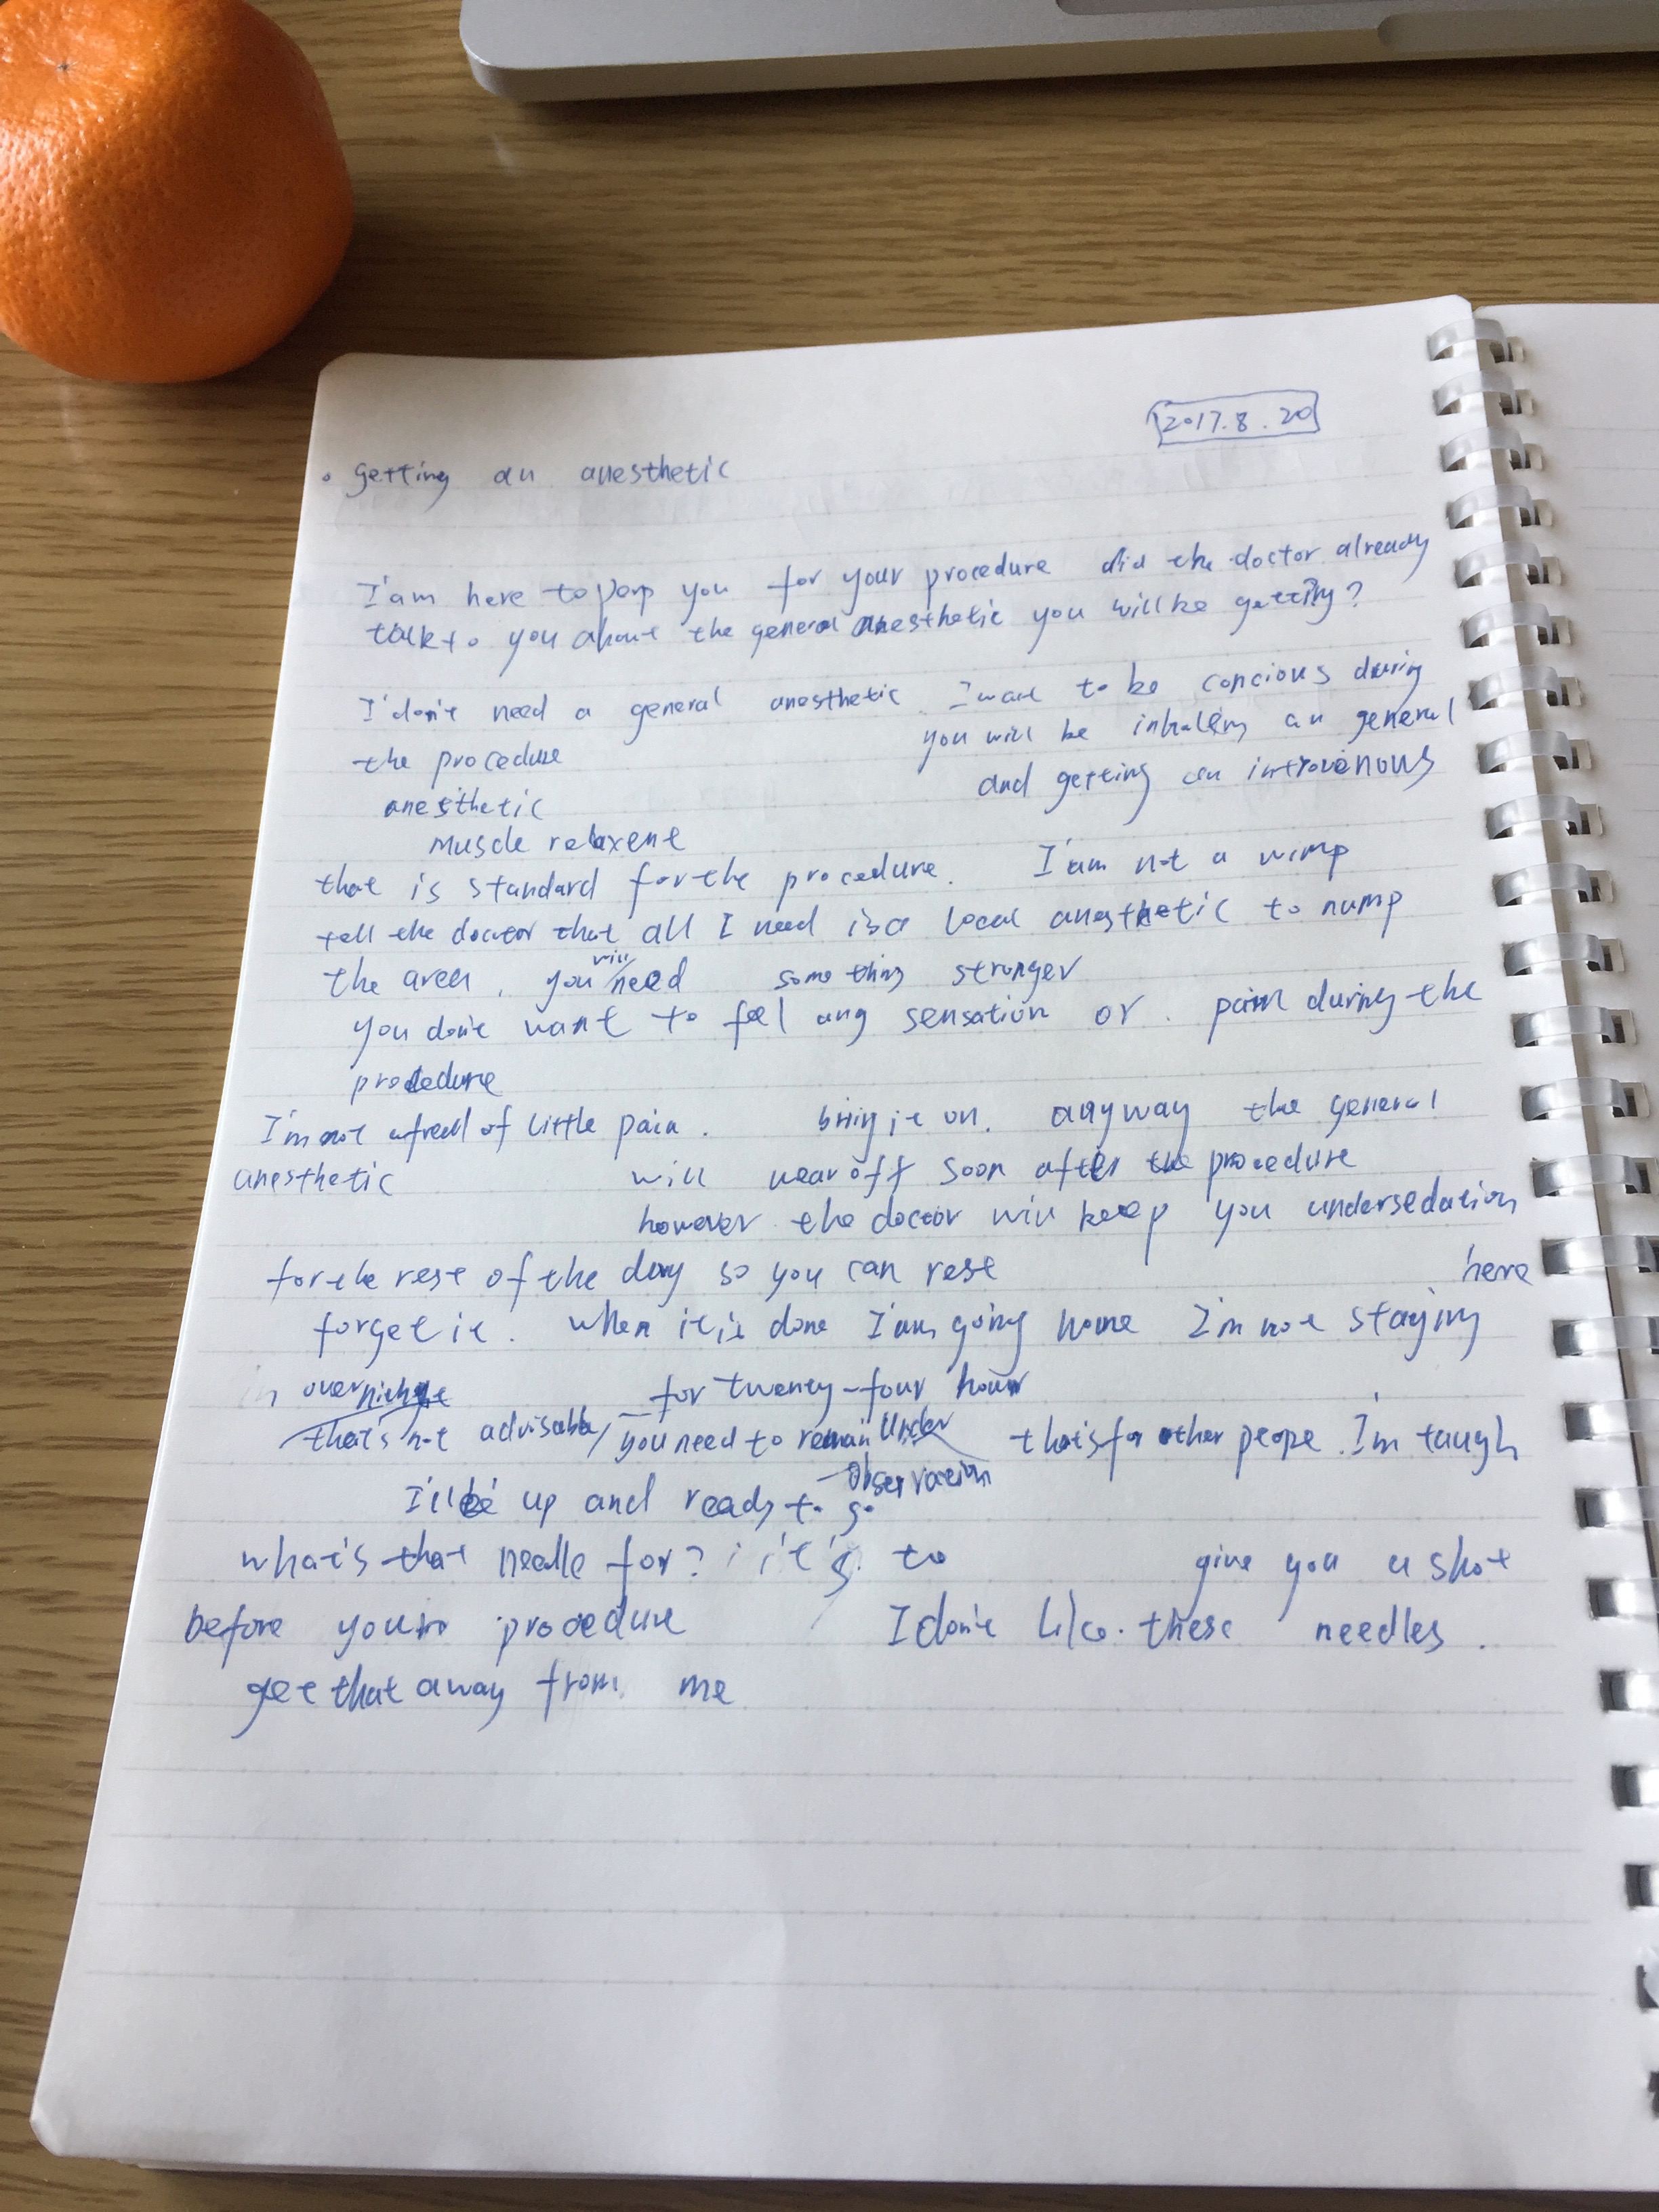 2017.8.20
• getting an anesthetic
I'am here to perp you for your procedure did the doctor already
talk to you about the general anesthetic you will be getting?
I'don't need a general anesthetic. I want to be concious during
the procedure you will be inhaling an general
anesthetic and getting an introvenous
muscle relaxent
that is standard for the procedure. I'am not a wimp
tell the doctor that all I need is a local anesthetic to nump
the area, you will need something stronger
you don't want to feel any sensation or pain during the
procedure
I'm not afreed of little pain. bring it on. anyway the general
anesthetic will wear off soon after the procedure
however the doctor will keep you undersedation
for the rest of the day so you can rest
here
forget it. when it is done I'am going home I'm not staying
in overnight for twenty-four hour
that's not advisable, you need to remain under that's for other peope. I'm taugh
observation
I'll be up and ready to go
what's that needle for? it's to give you a shot
before your procedure I don't like these needles.
get that away from me